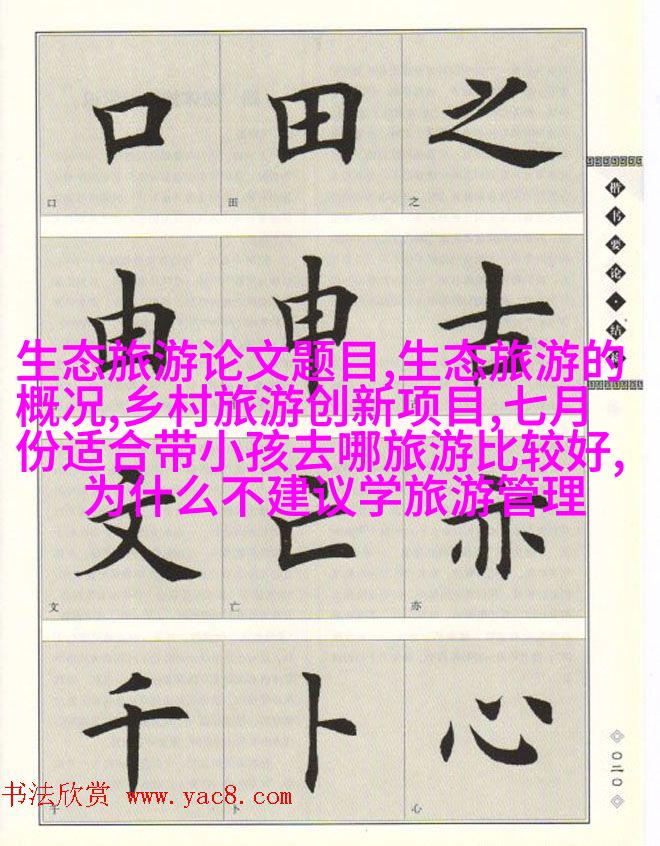 口 田 之
口 田 之
由 申 古
生态旅游论文题目,生态旅游的
概况,乡村旅游创新项目,七月
份适合带小孩去哪旅游比较好,
为什么不建议学旅游管理
文 亡 亦
文 亡 亦
千 卜 心
千 卜 心
楷书要论·结构
〇二〇
书法欣赏 www.yac8.com